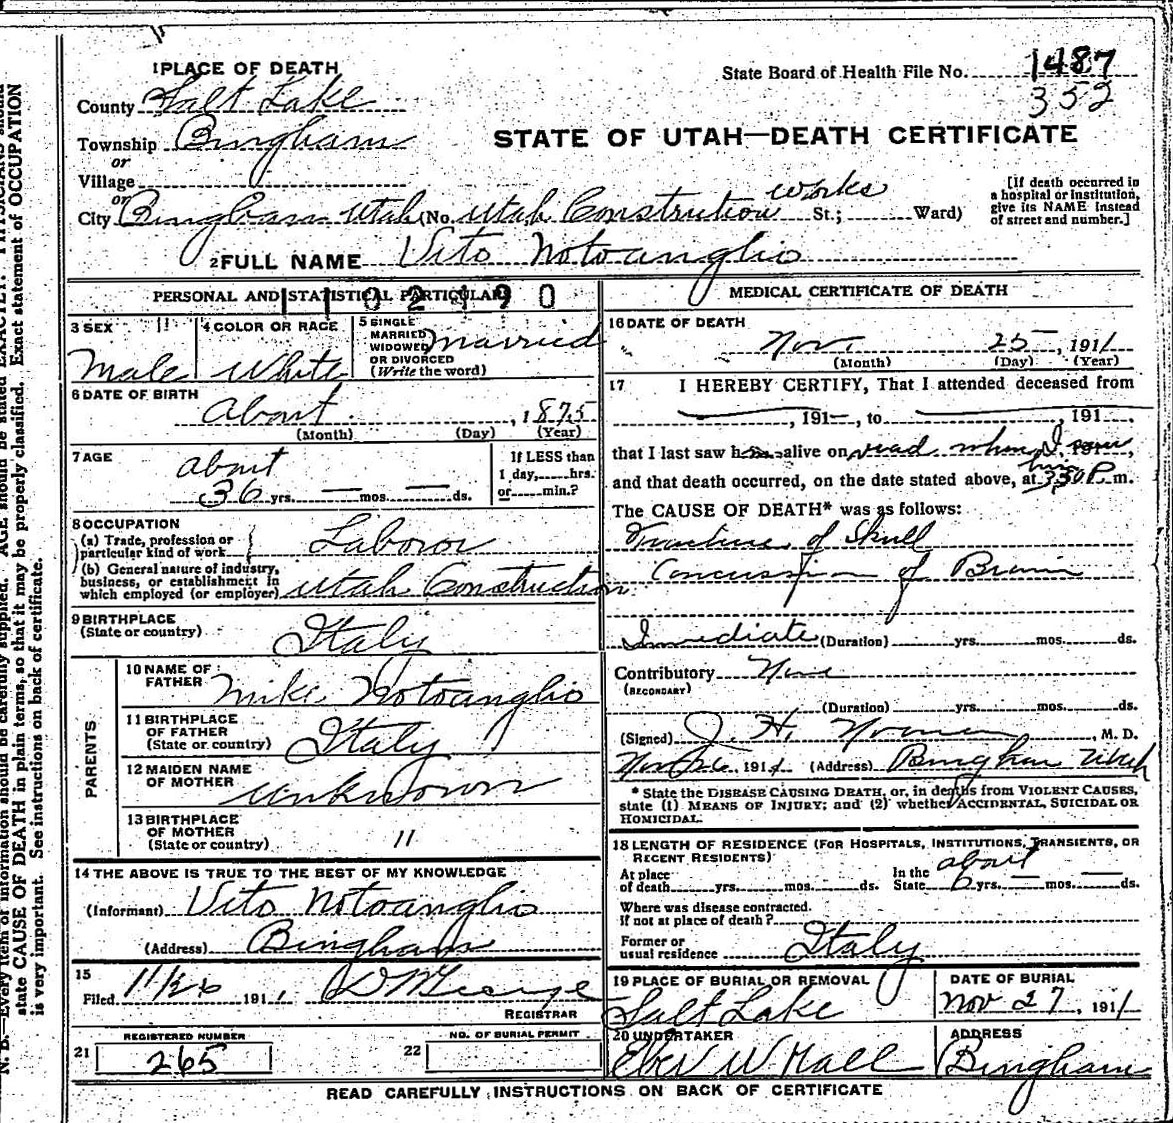 1 PLACE OF DEATH
County Salt Lake
Township Bingham
or
Village
or
City Bingham Utah (No. Utah Construction works St.; Ward)
State Board of Health File No. 1487
352
STATE OF UTAH—DEATH CERTIFICATE
[If death occurred in
a hospital or institution,
give its NAME instead
of street and number.]
2 FULL NAME Vito Notoanglio
PERSONAL AND STATISTICAL PARTICULARS
1102190
3 SEX
Male
4 COLOR OR RACE
White
5 SINGLE
MARRIED
WIDOWED
OR DIVORCED
(Write the word)
Married
6 DATE OF BIRTH
About , 1875
(Month) (Day) (Year)
7 AGE
about
36 yrs. — mos. — ds.
If LESS than
1 day, hrs.
or min.?
8 OCCUPATION
(a) Trade, profession or
particular kind of work
Laboror
(b) General nature of industry,
business, or establishment in
which employed (or employer)
Utah Construction
9 BIRTHPLACE
(State or country)
Italy
PARENTS
10 NAME OF
FATHER
Mike Notoanglio
11 BIRTHPLACE
OF FATHER
(State or country)
Italy
12 MAIDEN NAME
OF MOTHER
Unknown
13 BIRTHPLACE
OF MOTHER
(State or country)
"
14 THE ABOVE IS TRUE TO THE BEST OF MY KNOWLEDGE
(Informant) Vito Notoanglio
(Address) Bingham
15
Filed 11/26 1911
REGISTRAR
21 REGISTERED NUMBER
265
22 NO. OF BURIAL PERMIT
MEDICAL CERTIFICATE OF DEATH
16 DATE OF DEATH
Nov. 25, 1911
(Month) (Day) (Year)
17 I HEREBY CERTIFY, That I attended deceased from
, 191—, to , 191 ,
that I last saw h alive on dead when I saw 191 ,
him
and that death occurred, on the date stated above, at 3:30 P. m.
The CAUSE OF DEATH* was as follows:
Fracture of Skull
Concussion of Brain
Immediate (Duration) yrs. mos. ds.
Contributory None
(SECONDARY)
(Duration) yrs. mos. ds.
(Signed) J. H. , M. D.
Nov 26, 1911 (Address) Bingham Utah
* State the DISEASE CAUSING DEATH, or, in deaths from VIOLENT CAUSES,
state (1) MEANS OF INJURY; and (2) whether ACCIDENTAL, SUICIDAL OR
HOMICIDAL.
18 LENGTH OF RESIDENCE (FOR HOSPITALS, INSTITUTIONS, TRANSIENTS, OR
RECENT RESIDENTS)
At place
of death yrs. mos. ds.
In the
State about 6 yrs. — mos. — ds.
Where was disease contracted.
If not at place of death?
Former or
usual residence Italy
19 PLACE OF BURIAL OR REMOVAL
Salt Lake
DATE OF BURIAL
Nov 27, 1911
20 UNDERTAKER
Eber W Hall
ADDRESS
Bingham
READ CAREFULLY INSTRUCTIONS ON BACK OF CERTIFICATE
N. B.—Every item of information should be carefully supplied. AGE should be stated EXACTLY. PHYSICIANS should
state CAUSE OF DEATH in plain terms, so that it may be properly classified. Exact statement of OCCUPATION
is very important. See instructions on back of certificate.